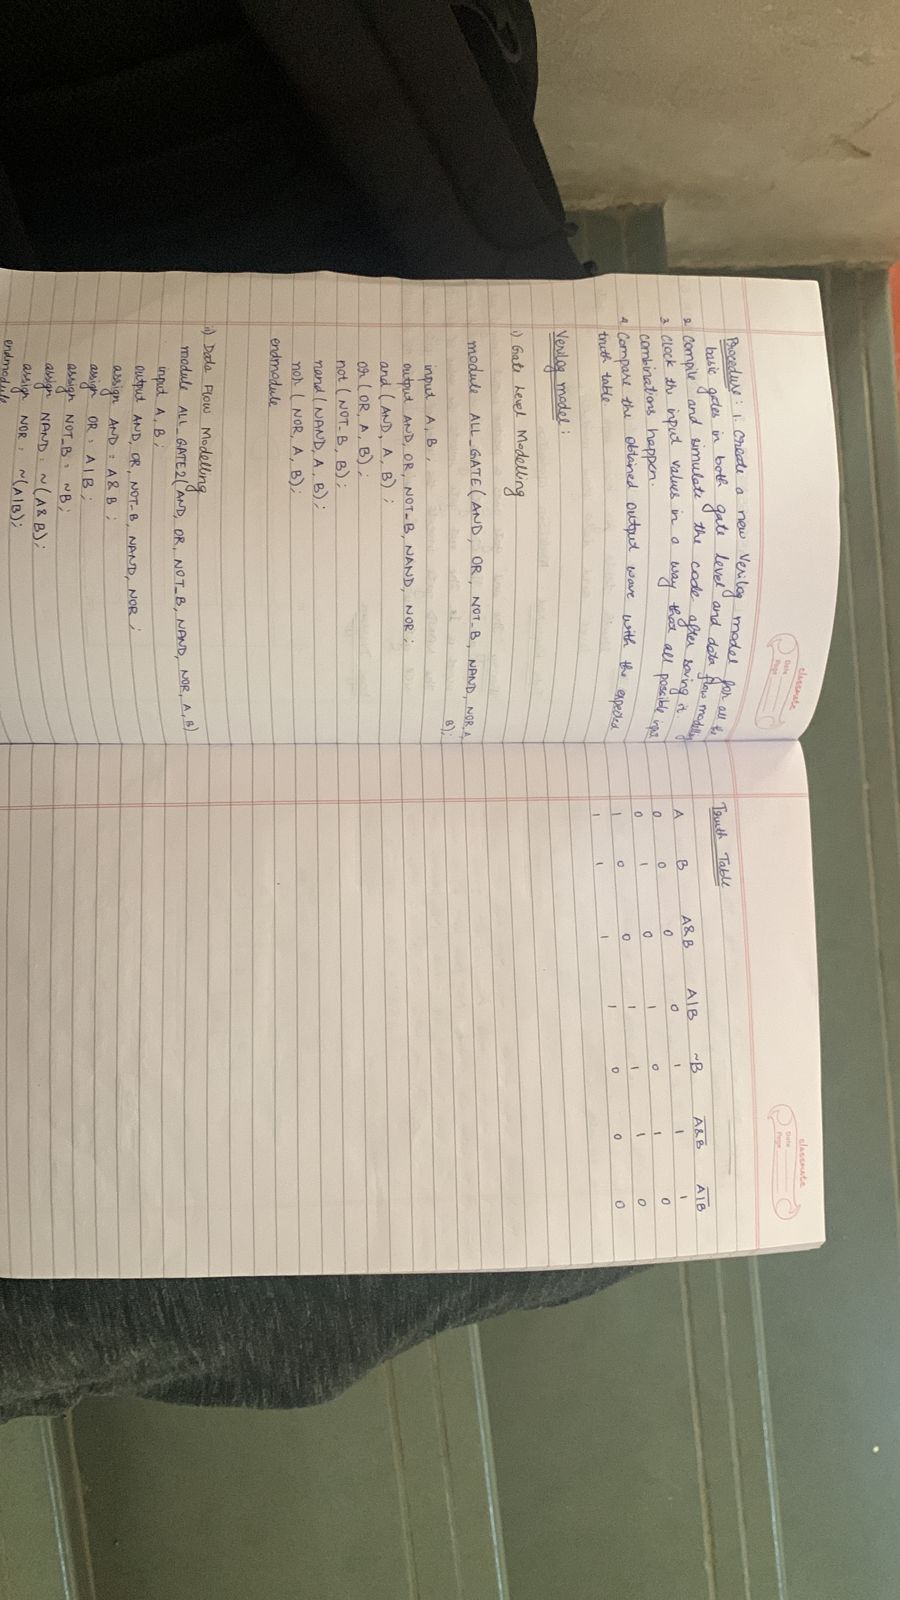 classmate
Date
Page
Procedure: 1. Create a new Verilog model for all the
basic gates in both gate level and data flow modelling
2. Compile and simulate the code after saving it.
3. Clock the input values in a way that all possible input
combinations happen.
4. Compare the obtained output wave with the expected
truth table
Verilog model:
i) Gate Level Modelling
module ALL_GATE(AND, OR, NOT_B, NAND, NOR, A,
B);
input A, B,
output AND, OR, NOT_B, NAND, NOR;
and (AND, A, B);
or (OR, A, B);
not (NOT_B, B);
nand (NAND, A, B);
nor (NOR, A, B);
endmodule
ii) Data Flow Modelling
module ALL_GATE2(AND, OR, NOT_B, NAND, NOR, A, B)
input A, B;
output AND, OR, NOT_B, NAND, NOR;
assign AND = A&B;
assign OR = A|B;
assign NOT_B = ~B;
assign NAND = ~(A&B);
assign NOR = ~(A|B);
endmodule
classmate
Date
Page
Truth Table
A B A&B A|B ~B A̅&̅B̅ A̅|̅B̅
0 0 0 0 1 1 1
0 1 0 1 0 1 0
1 0 0 1 1 1 0
1 1 1 1 0 0 0